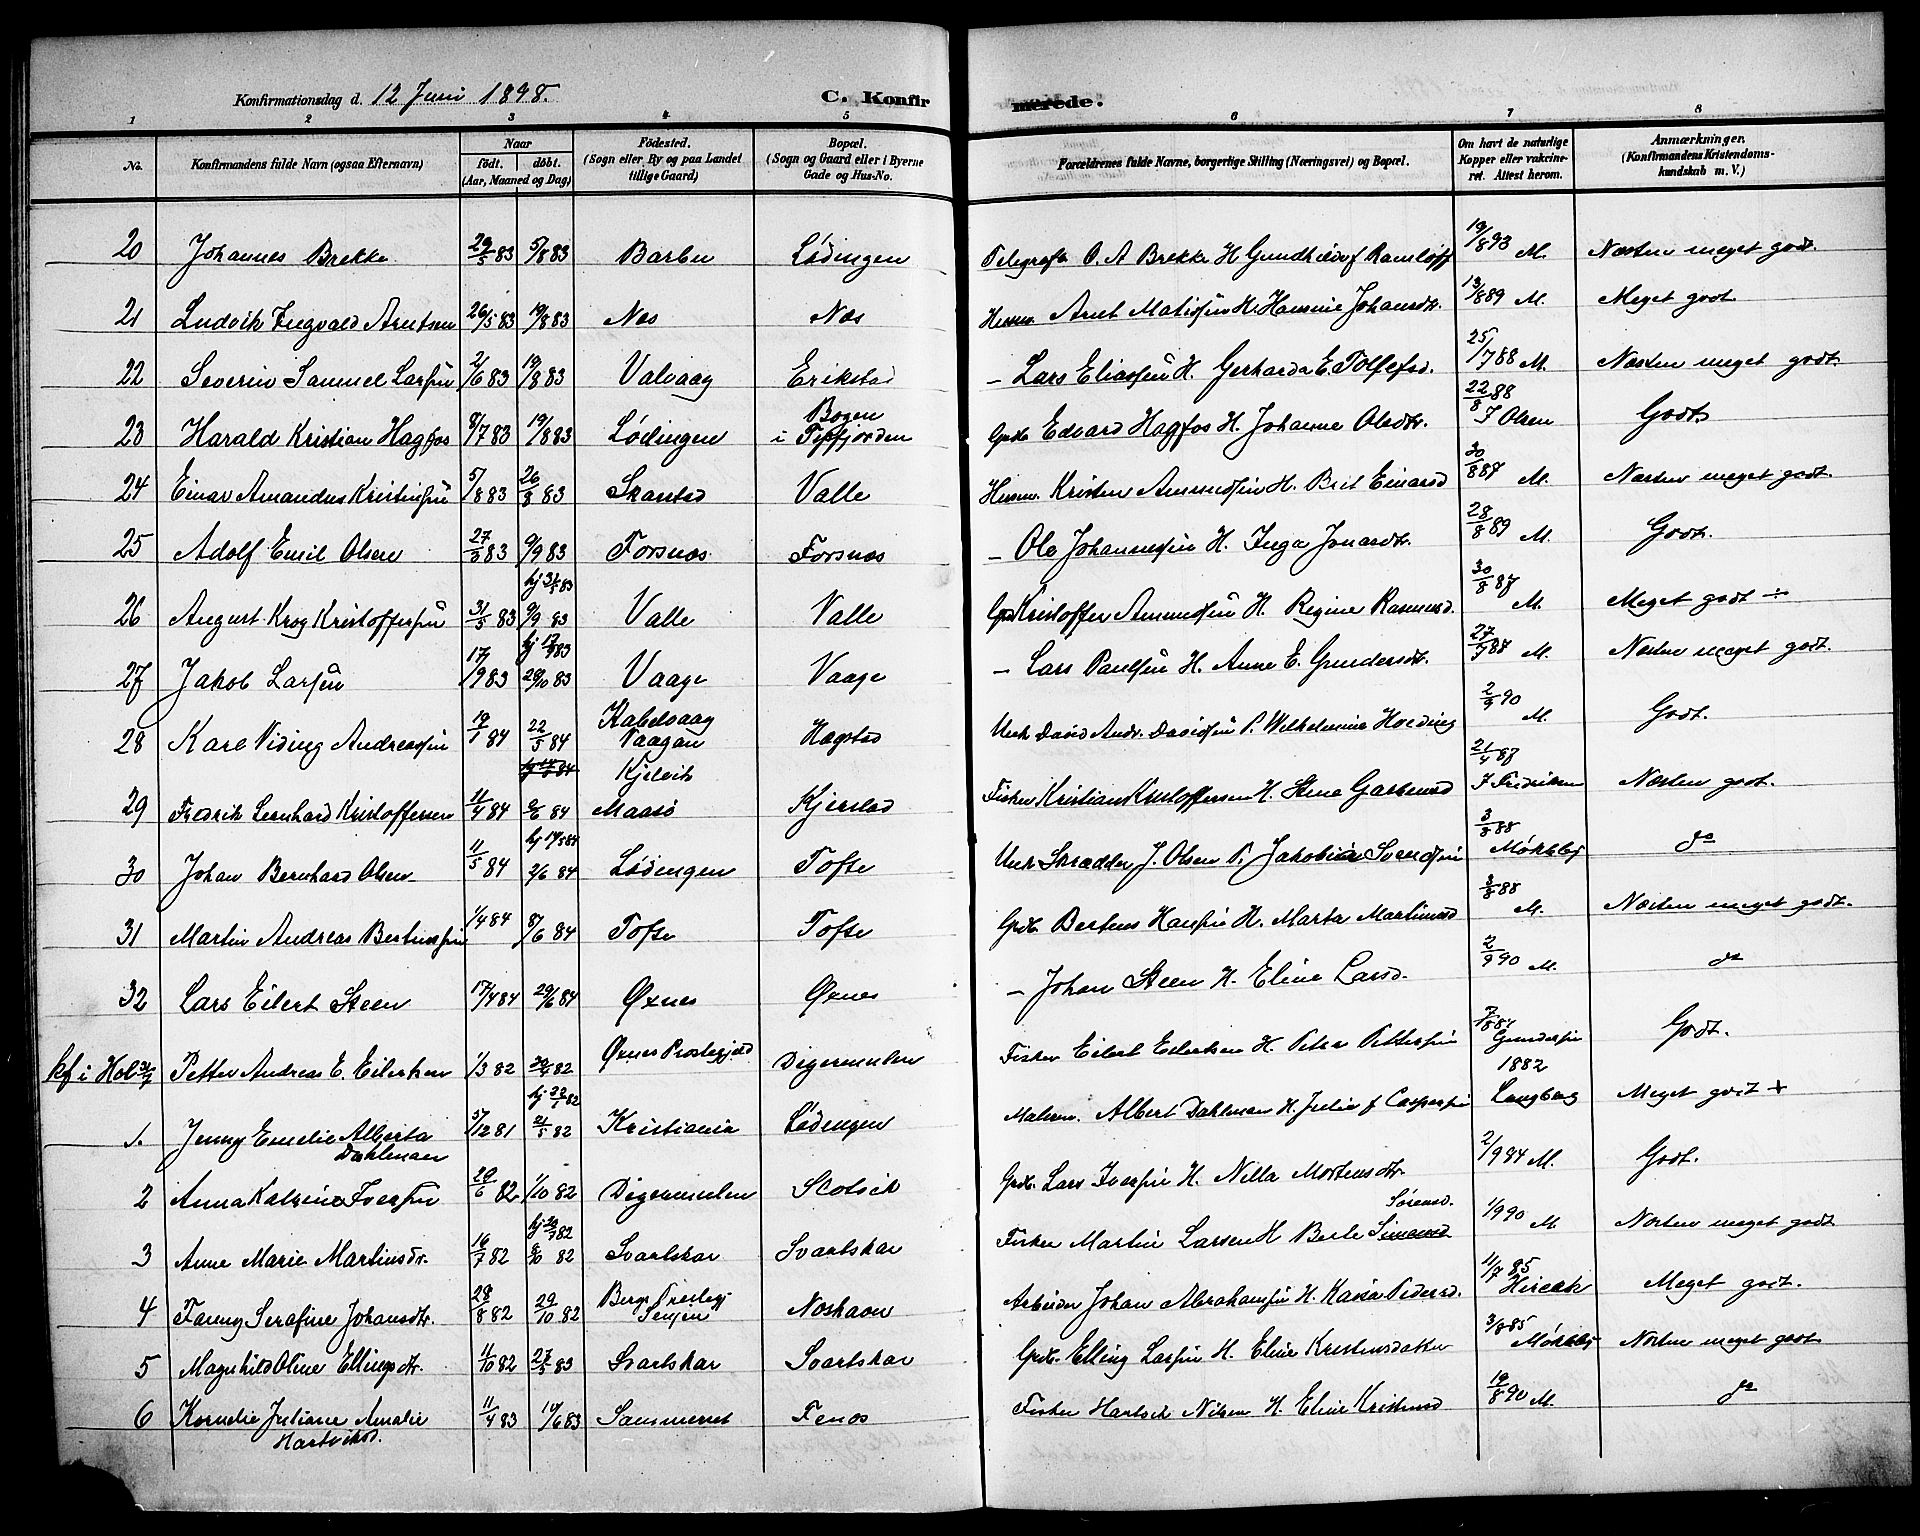 Konfirmationsdag d. 12 Juni 1898.
C. Konfir
merede.
1 2 3 4 5 6 7 8
No. Konfirmandens fulde Navn (ogsaa Efternavn) Naar födt. döbt. (Aar, Maaned og Dag) Födested. (Sogn eller By og paa Landet tillige Gaard) Bopæl. (Sogn og Gaard eller i Byerne Gade og Hus-No. Forældrenes fulde Navne, borgerlige Stilling (Næringsvei) og Bopæl. Om havt de naturlige Kopper eller vakcineret. Attest herom. Anmærkninger. (Konfirmandens Kristendomskundskab m. V.)
20 Johannes Brekke 29/5 83 5/8 83 Barbu Lødingen O. A Brekke H Gundhilda f Ramløff 19/8 93 M. Næsten meget godt.
21 Ludvik Ingvald Arntsen 26/5 83 19/8 83 Nes Næs Husm. Arnt Matisen H. Hansine Johansdtr. 13/8 89 M. Meget godt
22 Severin Samuel Larsen 2/6 83 19/8 83 Valvaag Erikstad – Lars Eliassen H. Gerharda E. Tollefsd. 25/7 88 M. Næsten meget godt.
23 Harald Kristian Hagfos 8/7 83 19/8 83 Lødingen Bogen i Edvard Hagfos H. Johanne Olsdtr. 22/8 88 J Olsen Godt
24 Einar Amandus Kristensen 5/8 83 26/8 83 Skanstad Valle Husm. Kristen H. Brit Einarsd 30/8 87 M. Næsten meget godt.
25 Adolf Emil Olsen 27/5 83 9/9 83 Forsnæs Forsnæs – Ole Johannesen H. Inga 28/8 89 M. Godt.
26 August Krog Kristoffersen 31/5 83 hj 31/5 83 9/9 83 Valle Valle Kristoffer H. Regine Rasmusd. 30/8 87 M. Meget godt ÷
27 Jakob Larsen 17/9 83 hj 17/9 83 28/10 83 Vaage Vaage – Lars Paulsen H. Anne E. Gundersdtr. M. Næsten meget godt.
28 Kare Viding Andreassen 19/1 84 22/5 84 Kabelvaag Vaagan Hægstad Davidsen P. Wilhelmine 2/9 90 M. Godt.
29 Fredrik Lernhard Kristoffersen 11/4 84 84 Kjelvik Maasø Kjerstad Fisker Kristian Kristoffersen H. Stina 21/4 87 J Fredriksen Næsten godt.
30 Johan Bernhard Olsen 11/5 84 2/6 84 Lødingen Tofte Skrædder J. Olsen P. Jakobine 3/8 88 Mørkeby do
31 Martin Andreas Bertinsen 1/4 84 8/6 84 Tofte Tofte Grdb. Hansen H. Marta Martinusd 3/8 88 M. Næsten meget godt.
32 Lars Eilert Steen 17/4 84 29/6 84 Øxnes Øxnes – Johan Steen H. Eline Larsd. 2/9 90 M. do
kf i Hol Petter Andreas E. Eilertsen 1/3 82 82 Øxnes Præstegjeld Digermulen Fisker Eilert Eilertsen H. Petra Pettersen Gundersen Godt.
1. Jenny Emelie Alberta Dahlman 5/12 81 82 Kristiania Lødingen Malerm. Albert Dahlman H. Julie f Caspersen 1882 Langberg Meget godt +
2 Anna Katrine Iversen 29/6 82 1/10 82 Digermulen Slotvik Grdb. Lars Iversen H. Nilla Mortensdtr. 2/9 84 M. Godt.
3 Anne Marie Martinsdtr. 16/7 82 8/10 82 Svartskar Svartskar Fisker Martin Larsen H Berle Simonsd Sørensd. 1/9 90 M Næsten meget godt
4 Fanny Serafine Johansdtr. 28/8 82 29/10 82 Bergs Prestegj. Senjen Neshavn Arbeider Johan Abrahamsen H Kaisa Pedersd. 11/7 85 Meget godt.
5 Magnhild Oline Ellingsdtr. 11/10 82 83 Svartskar Svartskar Grdb. Elling Larsen H. Eline Kristensdatter 3/8 85 Mørkeby Næsten meget godt
6 Kornelie Juliane Amalie Hartviksd. 11/4 83 83 Sommerset Fenes Fisker Hartvik Nilsen H. Eline Kristensd 19/8 90 M. do